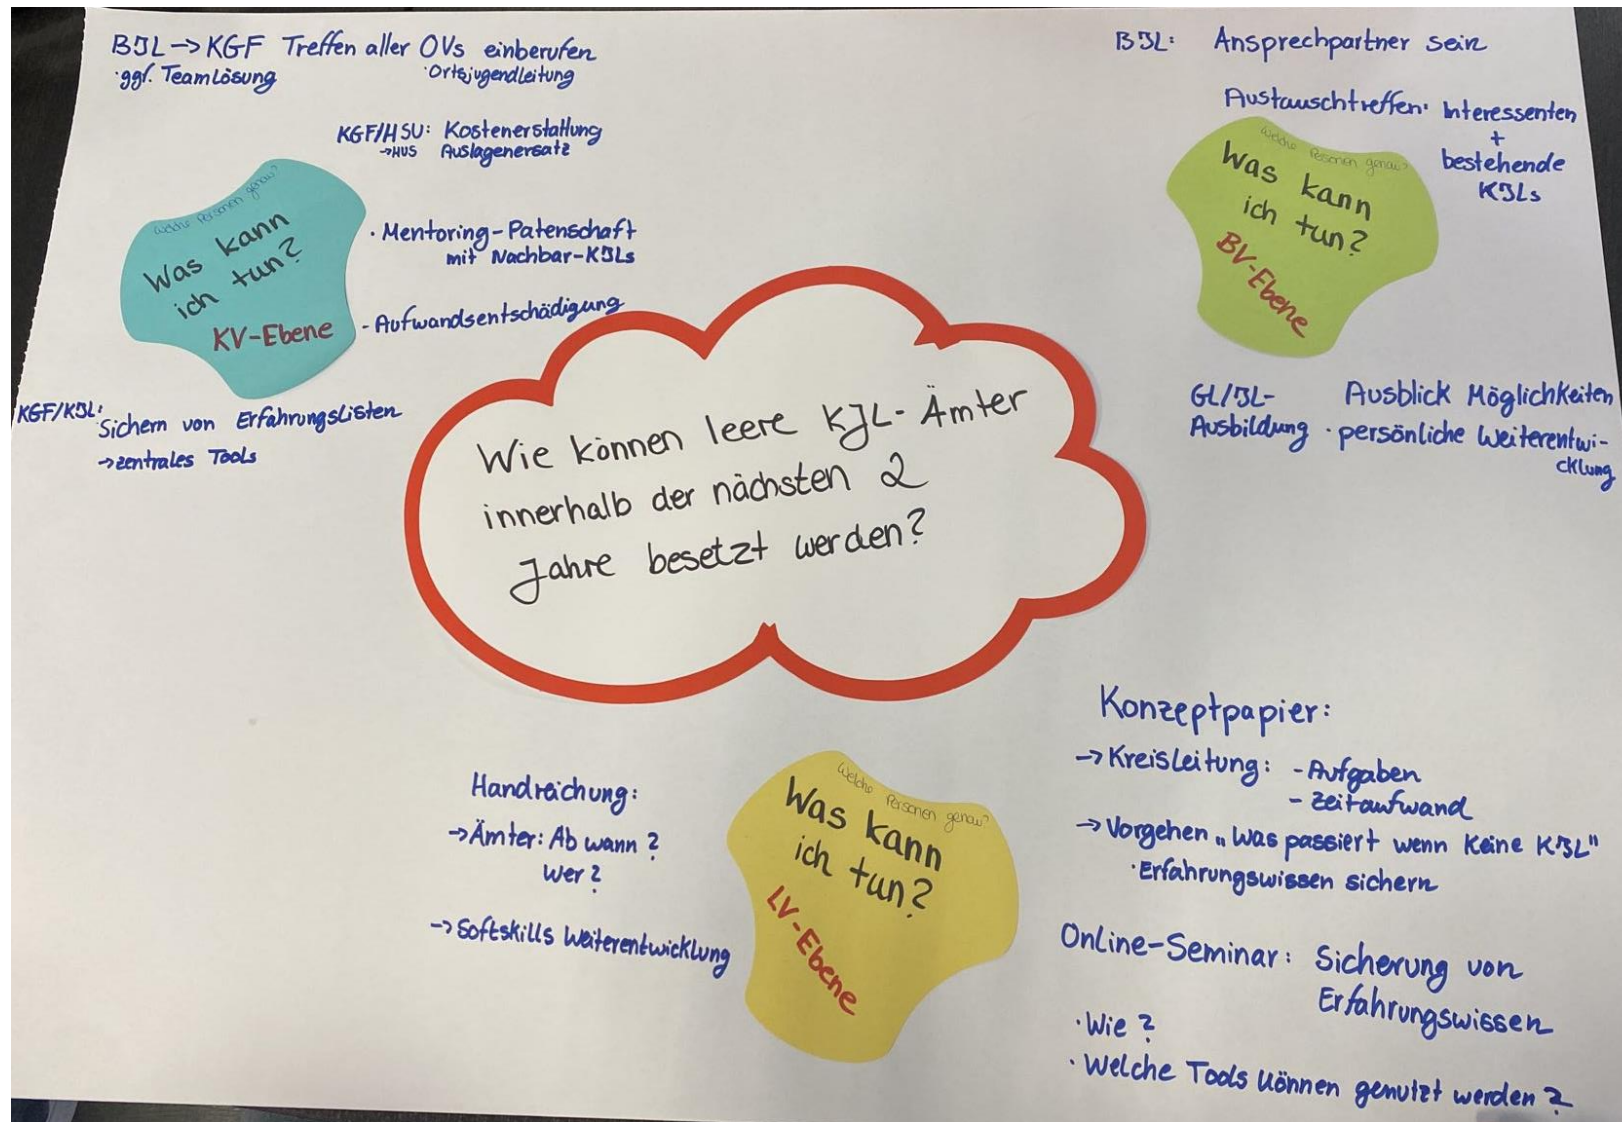 BJL → KGF Treffen aller OVs einberufen
· ggf. Teamlösung
· Ortsjugendleitung
KGF/HSU: Kostenerstattung
→ HUS Auslagenersatz
Welche Personen genau?
Was kann
ich tun?
KV-Ebene
· Mentoring-Patenschaft
mit Nachbar-KJLs
- Aufwandsentschädigung
KGF/KJL:
Sichern von Erfahrungslisten
→ zentrales Tools
BJL: Ansprechpartner sein
Austauschtreffen: Interessenten
+
bestehende
KJLs
Welche Personen genau?
Was kann
ich tun?
BV-Ebene
GL/JL-
Ausbildung
Ausblick Möglichkeiten
· persönliche Weiterentwi-
cklung
Wie können leere KJL-Ämter
innerhalb der nächsten 2
Jahre besetzt werden?
Handreichung:
→ Ämter: Ab wann?
Wer?
→ Softskills Weiterentwicklung
Welche Personen genau?
Was kann
ich tun?
LV-Ebene
Konzeptpapier:
→ Kreisleitung: - Aufgaben
- Zeitaufwand
→ Vorgehen „Was passiert wenn keine KJL"
· Erfahrungswissen sichern
Online-Seminar: Sicherung von
Erfahrungswissen
· Wie?
· Welche Tools können genutzt werden?